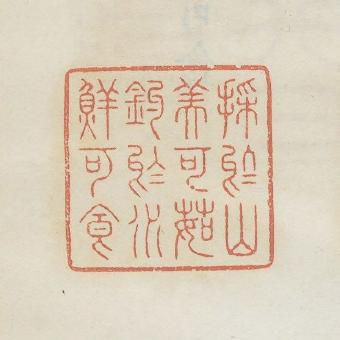 採於山
美可茹
釣於水
鮮可食